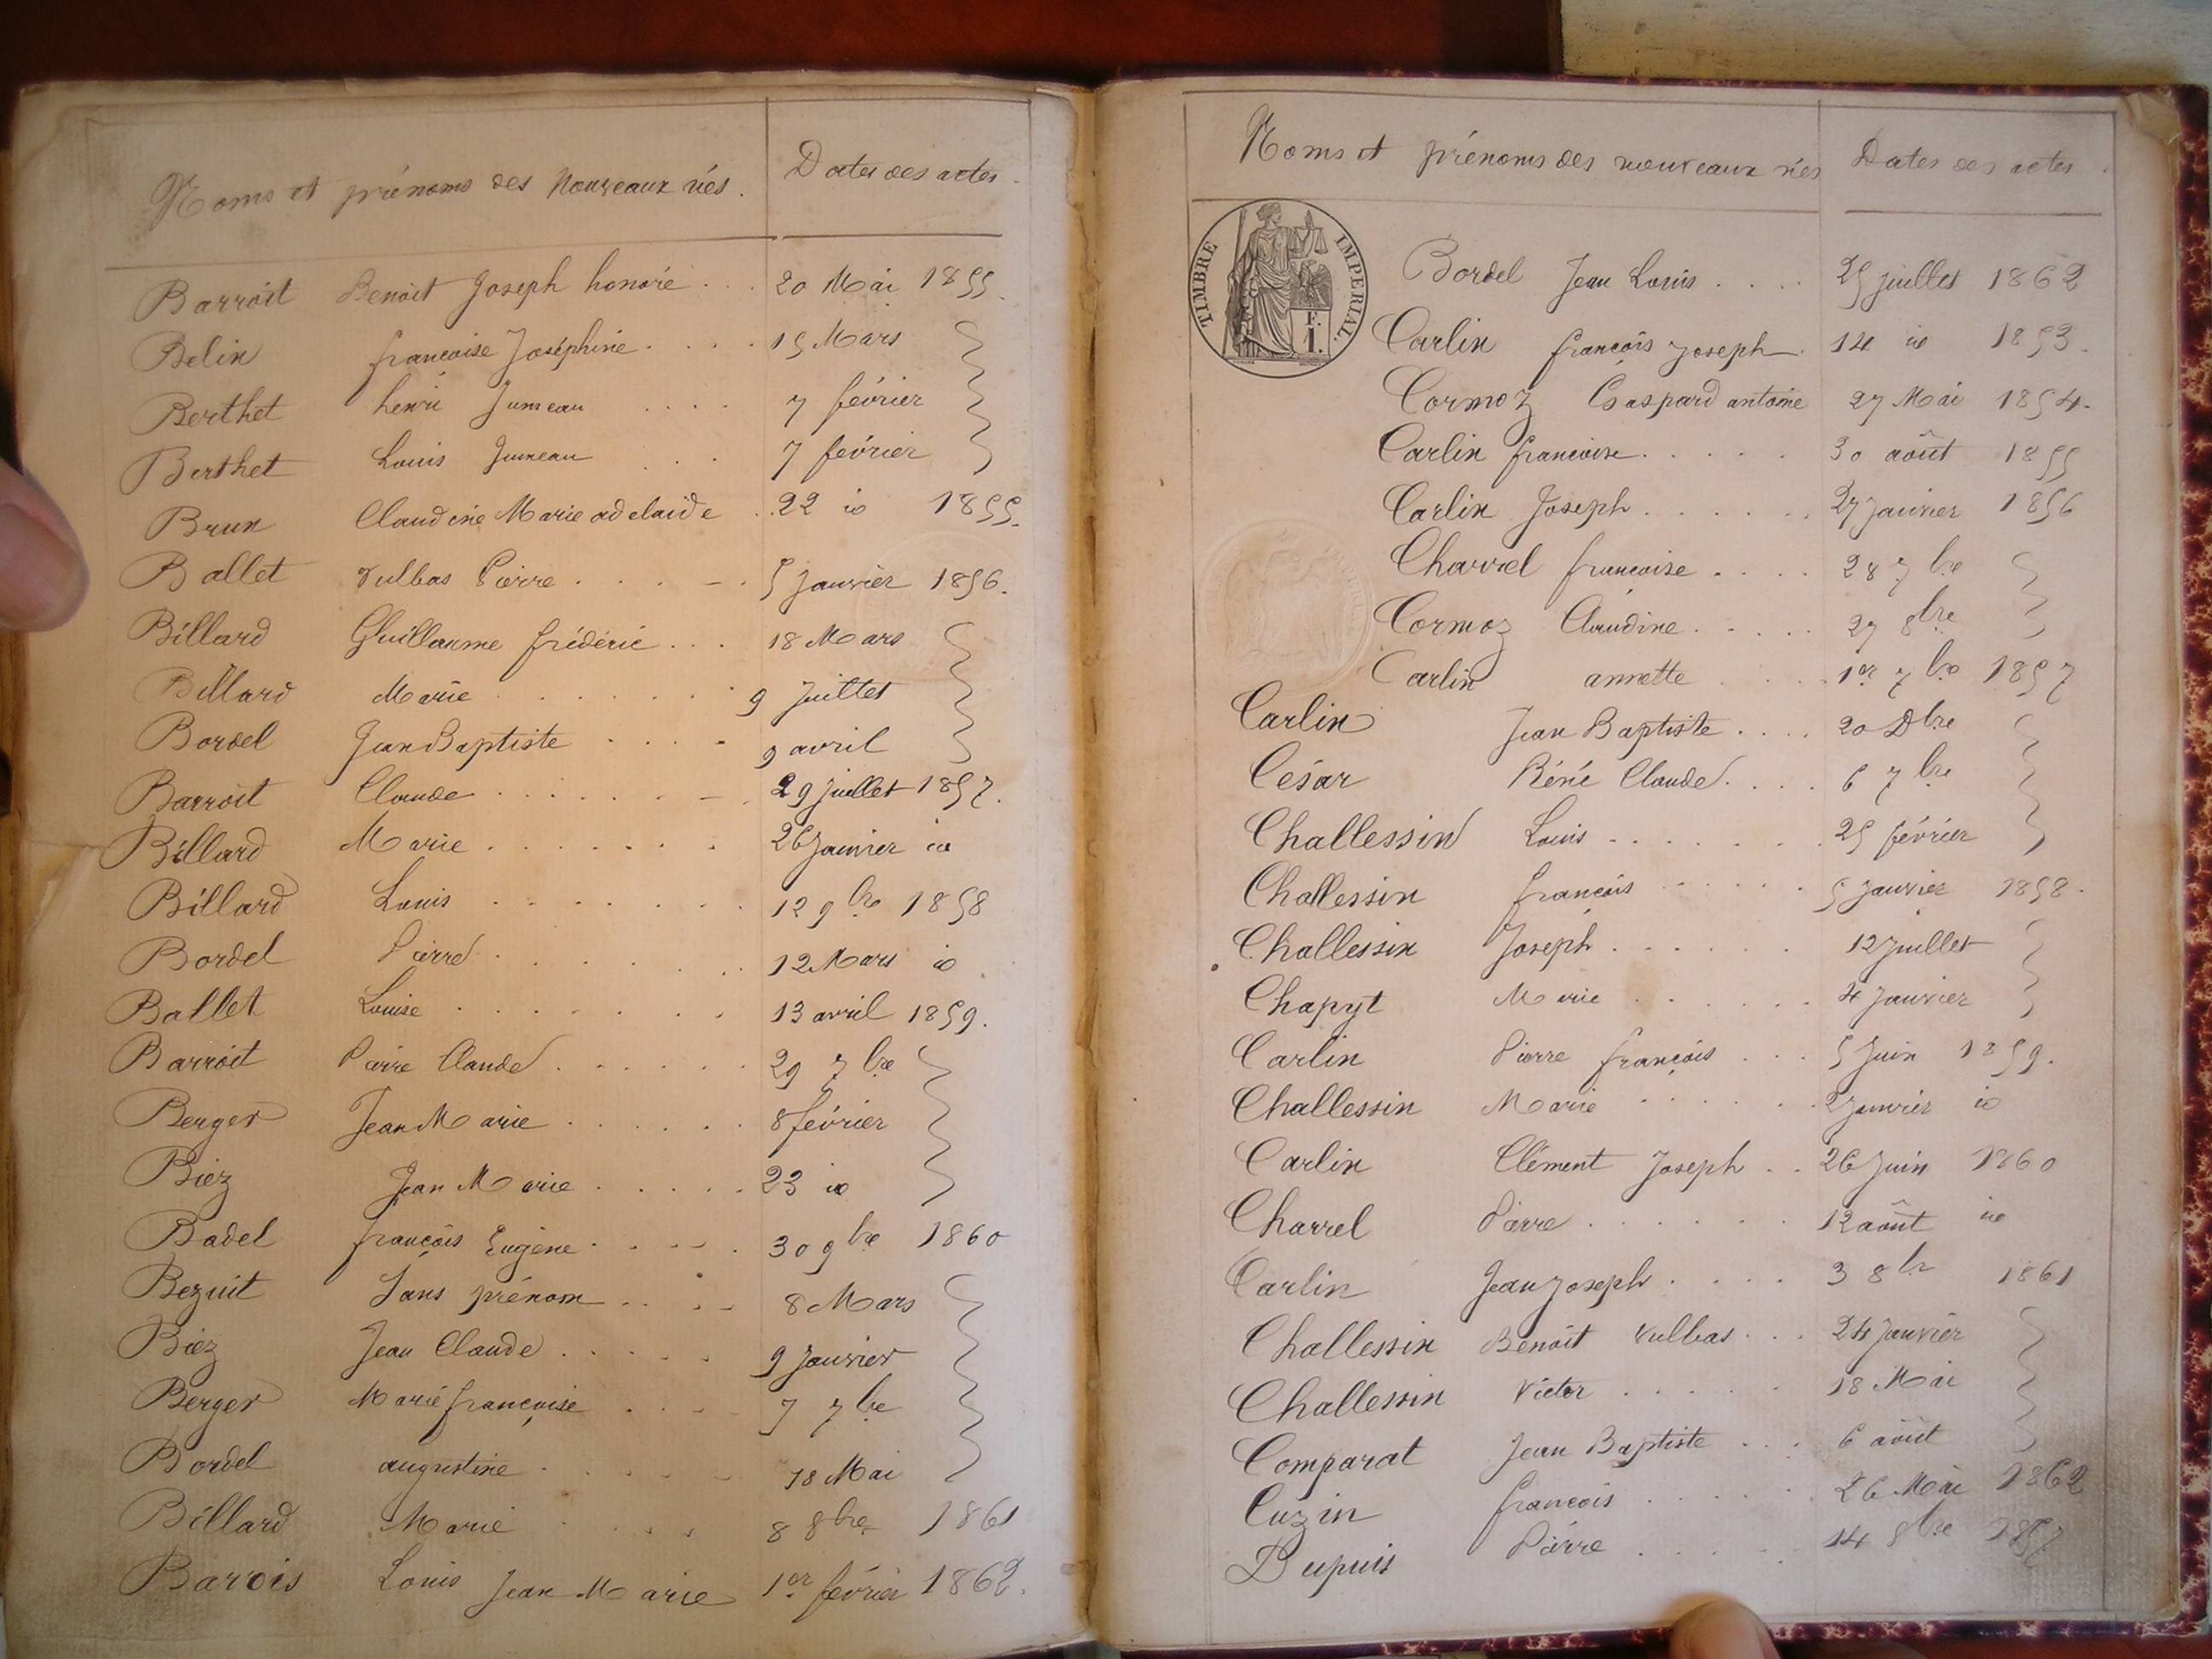 Noms et prénoms des nouveaux nés. Dates des actes.
Barroit Benoit Joseph honoré 20 Mai 1855.
Belin françoise Joséphine 15 Mars
Berthet henri Jumeau 7 février
Berthet Louis Jumeau 7 février
Brun Claudine Marie adelaide 22 id 1855.
Ballet Vulbas Pierre 5 Janvier 1856.
Billard Guillaume frédéric 18 Mars
Billard Marie 9 Juillet
Bordel Jean Baptiste 9 avril
Barroit Claude 29 juillet 1857.
Billard Marie 26 Janvier id
Billard Louis 12 9bre 1858
Bordel Pierre 12 Mars id
Ballet Louise 13 avril 1859.
Barroit Pierre Claude 29 7bre
Berger Jean Marie 8 février
Biez Jean Marie 23 id
Badel françois Eugène 30 9bre 1860
Bezuit Sans prénom 8 Mars
Biez Jean Claude 9 Janvier
Berger Marie françoise 7 7bre
Bordel augustine 18 Mai
Billard Marie 8 8bre 1861
Barois Louis Jean Marie 1er février 1862.
Noms et prénoms des nouveaux nés Dates des actes.
TIMBRE IMPERIAL.
F. 1.
Bordel Jean Louis 25 juillet 1862
Carlin françois Joseph 14 id 1853.
Cormoz Gaspard antoine 27 Mai 1854.
Carlin françoise 30 août 1855
Carlin Joseph 27 Janvier 1856
Charvel françoise 28 7bre
Cormoz Claudine 27 8bre
Carlin annette 1er 7bre 1857
Carlin Jean Baptiste 20 Dbre
César Réné Claude 6 7bre
Challessin Louis 25 février
Challessin françois 5 Janvier 1858.
Challessin Joseph 12 Juillet
Chapyt Marie 4 Janvier
Carlin Pierre françois 5 Juin 1859.
Challessin Marie 2 Janvier id
Carlin Clément Joseph 26 Juin 1860
Charvel Pierre 12 août id
Carlin Jean Joseph 3 8bre 1861
Challessin Benoit Vulbas 24 Janvier
Challessin Victor 18 Mai
Comparat Jean Baptiste 6 août
Cuzin françois 26 Mai 1862
Dupuis Pierre 14 8bre 1857